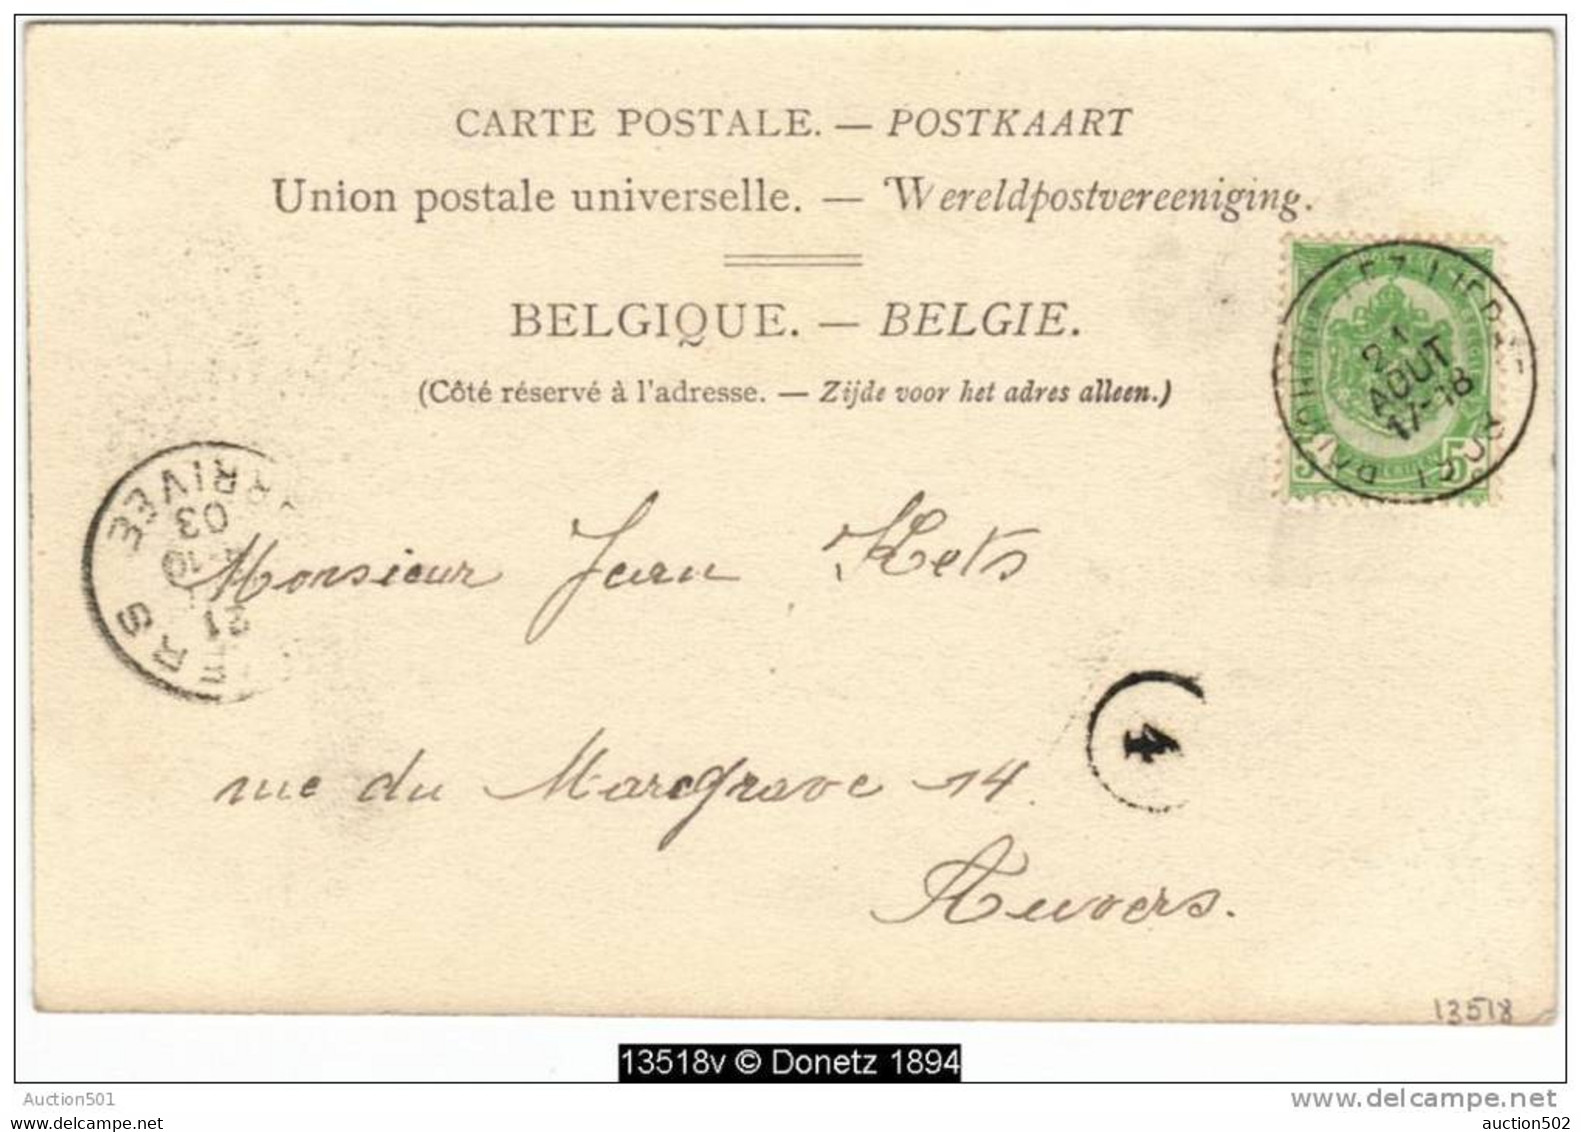 CARTE POSTALE. — POSTKAART
Union postale universelle. — Wereldpostvereeniging.
BELGIQUE. — BELGIE.
(Côté réservé à l'adresse. — Zijde voor het adres alleen.)
21
AOUT
17-18
5
RRIVEE
03
RS
Monsieur Jean Kets
4
rue du Marcgrave 14
Anvers.
13518
13518v © Donetz 1894
Auction501
www.delcampe.net
auction501
auction502